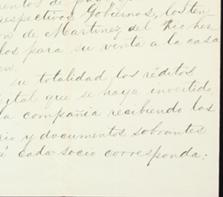 entos de
respectivos Gobiernos, los ten
n de Martinez del Rio her
los para su venta a la casa
en.
su totalidad los réditos
ital que se haya invertido
a compañia recibiendo los
rio y documentos sobrantes
é cada socio corresponda: